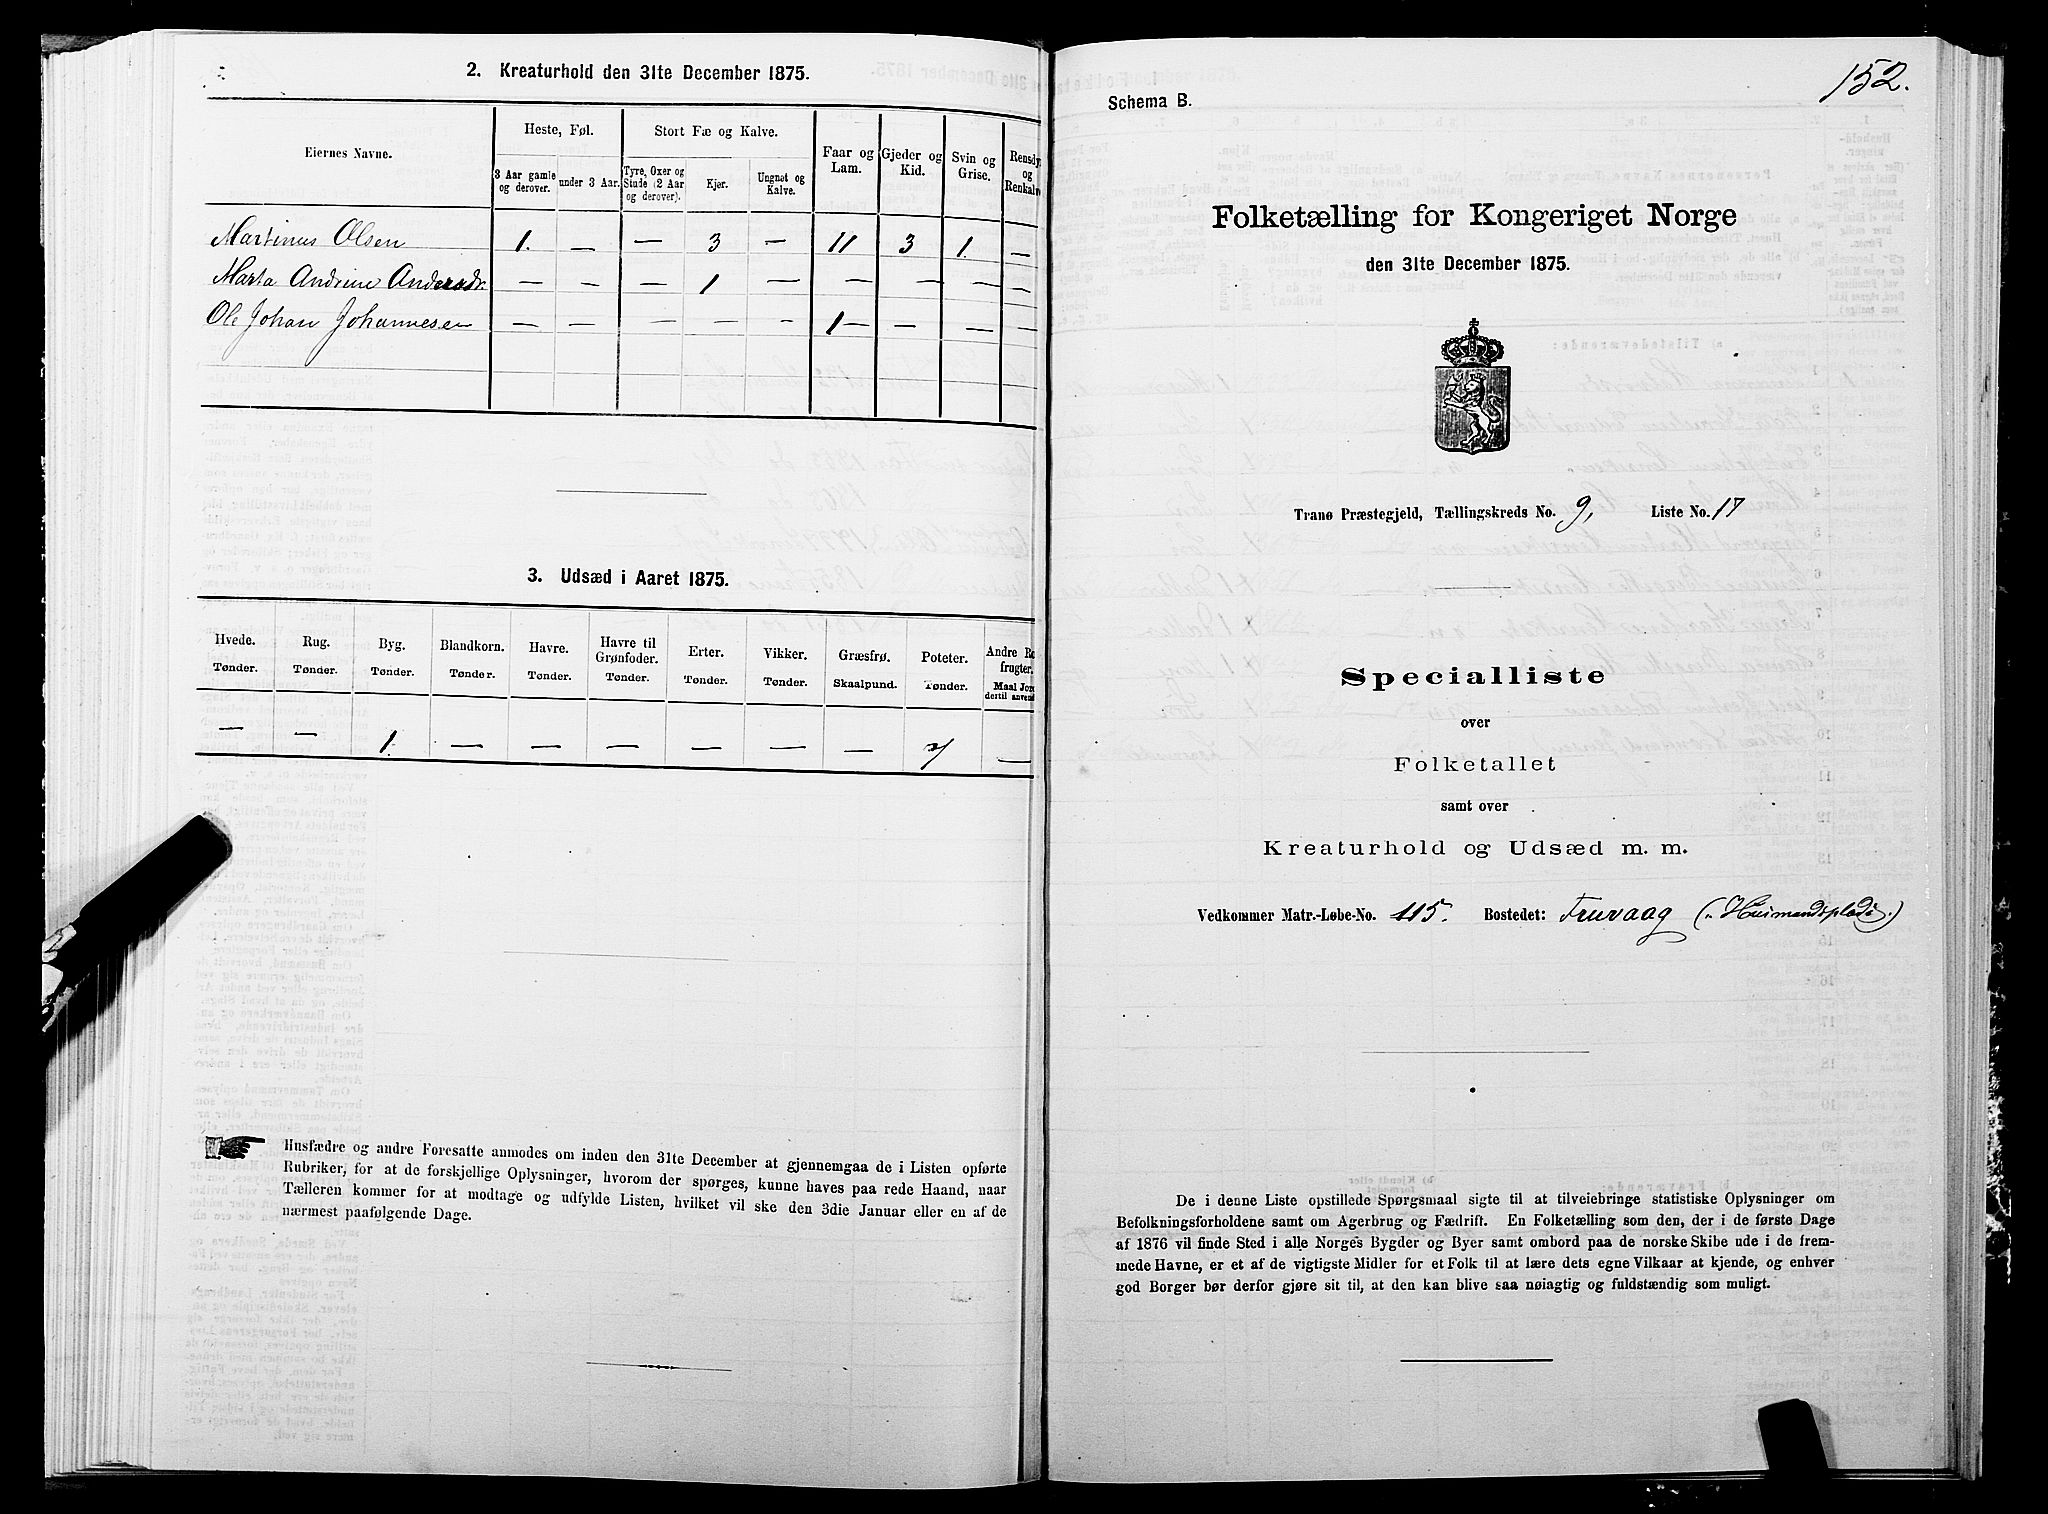 2. Kreaturhold den 31te December 1875.
Eiernes Navne.
Heste, Føl.
Stort Fæ og Kalve.
Faar og Lam.
Gjeder og Kid.
Svin og Grise.
Rensdy
og
Renkalv
3 Aar gamle og derover.
under 3 Aar.
Tyre, Oxer og Stude (2 Aar og derover).
Kjør.
Ungnøt og Kalve.
Martinus Olsen 1. — — 3 — 11 3 1. —
Marta Andrine Andersdr. — — — 1 — — — — —
Ole Johan Johannesen — — — — — 1 — — — —
3. Udsæd i Aaret 1875.
Hvede. Rug. Byg. Blandkorn. Havre. Havre til Grønfoder. Erter. Vikker. Græsfrø. Poteter. Andre Ro
frugter.
Tønder. Tønder. Tønder. Tønder. Tønder. Tønder. Tønder. Tønder. Skaalpund. Tønder. Maal Jord
dertil anvend
— — 1. — — — — — — 7 —
Husfædre og andre Foresatte anmodes om inden den 31te December at gjennemgaa de i Listen opførte
Rubriker, for at de forskjellige Oplysninger, hvorom der spørges, kunne haves paa rede Haand, naar
Tælleren kommer for at modtage og udfylde Listen, hvilket vil ske den 3die Januar eller en af de
nærmest paafølgende Dage.
152.
Schema B.
Folketælling for Kongeriget Norge
den 31te December 1875.
Tranø Præstegjeld, Tællingskreds No. 9, Liste No. 17
Specialliste
over
Folketallet
samt over
Kreaturhold og Udsæd m. m.
Vedkommer Matr.-Løbe-No. 115. Bostedet: Fruvaag (Husmandsplads.)
De i denne Liste opstillede Spørgsmaal sigte til at tilveiebringe statistiske Oplysninger om
Befolkningsforholdene samt om Agerbrug og Fædrift. En Folketælling som den, der i de første Dage
af 1876 vil finde Sted i alle Norges Bygder og Byer samt ombord paa de norske Skibe ude i de frem-
mede Havne, er et af de vigtigste Midler for et Folk til at lære dets egne Vilkaar at kjende, og enhver
god Borger bør derfor gjøre sit til, at den kan blive saa nøiagtig og fuldstændig som muligt.